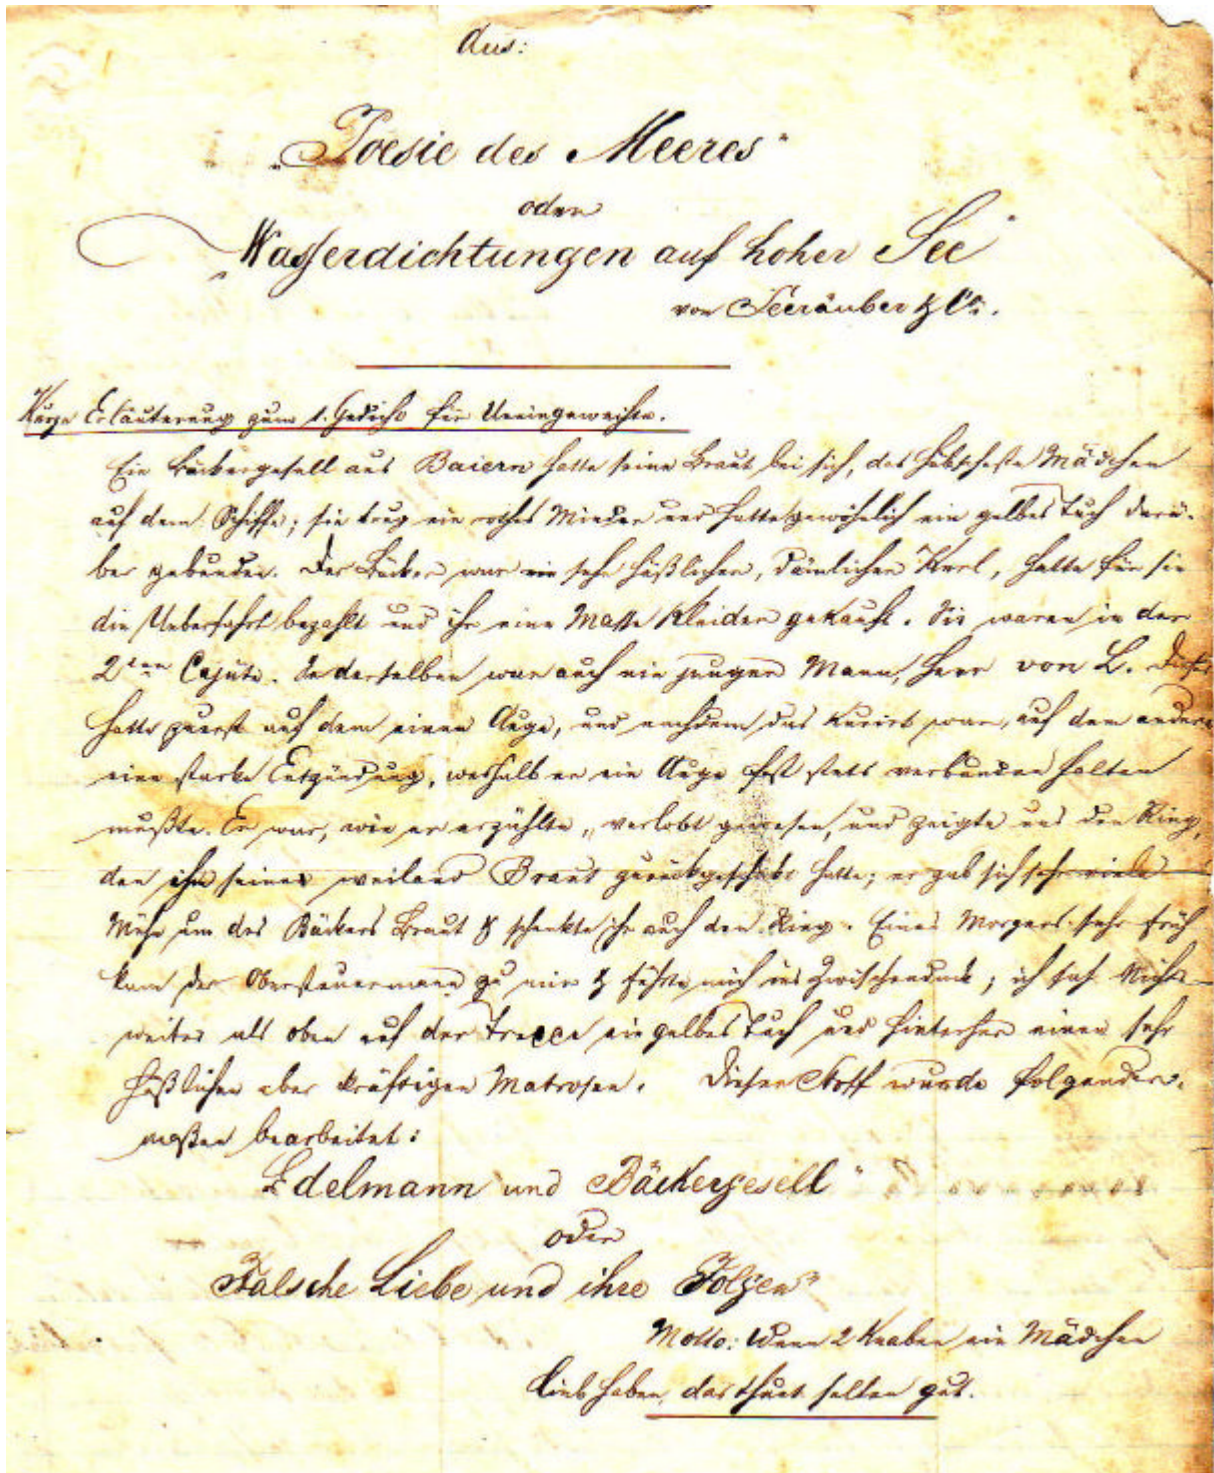 Aus:
„Poesie des Meeres"
oder
„Wasserdichtungen auf hoher See"
von Seeräuber & Co.
Kurze Erläuterung zum 1. Gedicht für Uneingeweihte.
Ein Bäckergesell aus Baiern hatte seine Braut bei sich, das hübscheste Mädchen
auf dem Schiffe; sie trug ein rothes Mieder und hatte gewöhnlich ein gelbes Tuch darü-
ber gebunden. Der Bäcker war ein sehr häßlicher, dämlicher Kerl, hatte für sie
die Ueberfahrt bezahlt und ihr eine Masse Kleider gekauft. Sie waren in der
2ten Cajüte. In derselben war auch ein junger Mann, Herr von L. Dieser
hatte zuerst auf dem einen Auge, und nachdem das kurirt war, auf dem andern
eine starke Entzündung, weshalb er ein Auge fast stets verbunden halten
mußte. Er war, wie er erzählte, verlobt gewesen, und zeigte uns den Ring,
den ihm seine weiland Braut zurückgeschickt hatte; er gab sich sehr viele
Mühe um des Bäckers Braut & schenkte ihr auch den Ring. Eines Morgens sehr früh
kam der Obersteuermann zu mir & führte mich ins Zwischendeck; ich sah Nichts
weiter als oben auf der Treppe ein gelbes Tuch und hinterher einen sehr
häßlichen aber kräftigen Matrosen. Dieser Stoff wurde folgender-
maßen bearbeitet:
„Edelmann und Bäckergesell"
oder
„Falsche Liebe und ihre Folgen"
Motto: Wenn 2 Knaben ein Mädchen
lieb haben, das thut selten gut.